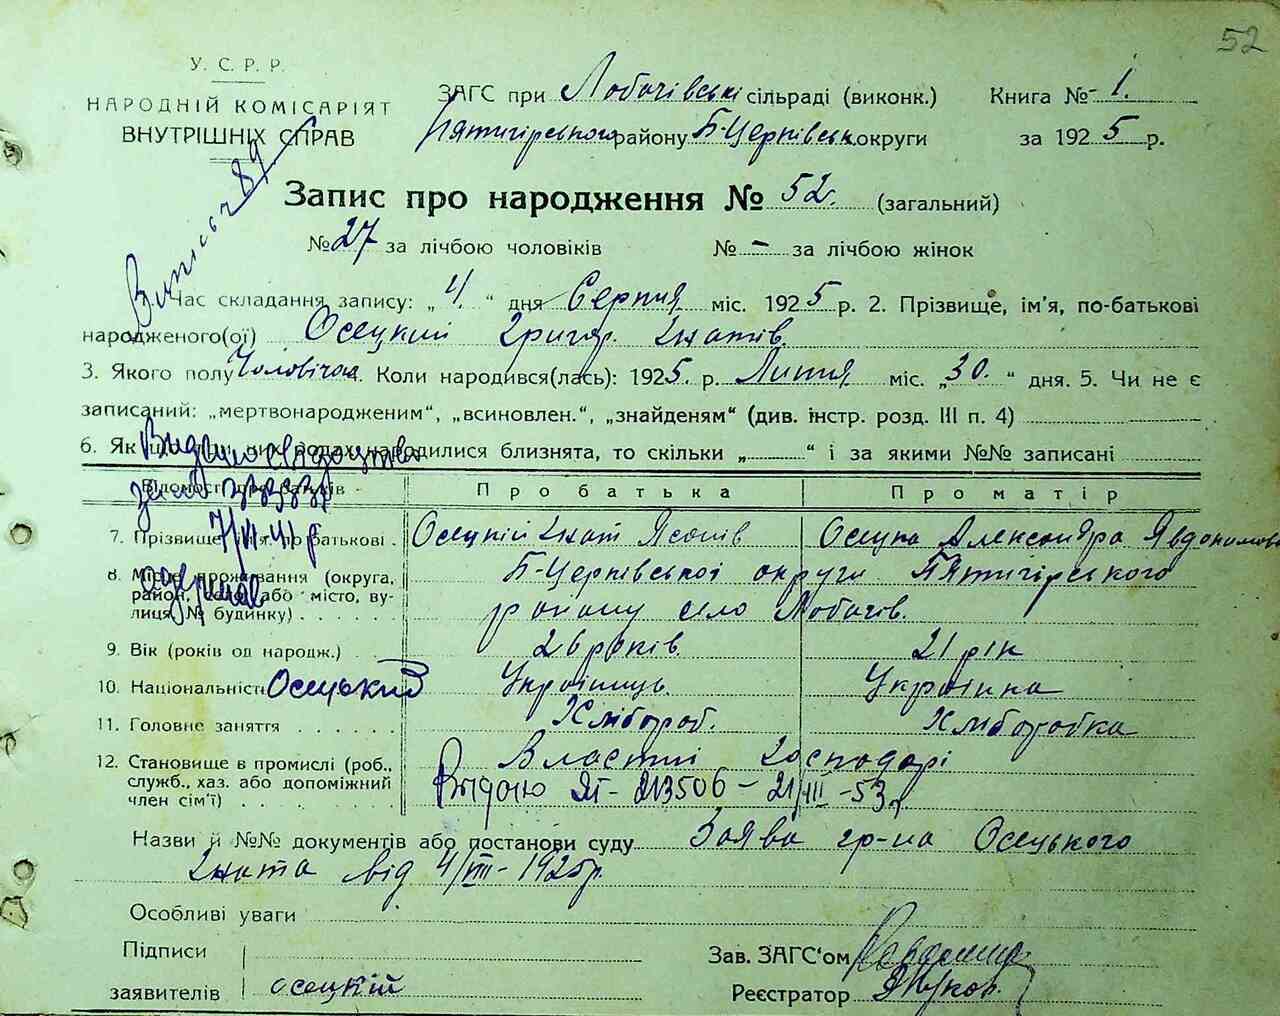 52
У. С. Р. Р.
НАРОДНІЙ КОМІСАРІЯТ
ВНУТРІШНІХ СПРАВ
ЗАГС при Лобачівські сільраді (виконк.) Книга № 1.
Пятигірського району Б-Церківськ округи за 1925 р.
Запис про народження № 52. (загальний)
№ 27 за лічбою чоловіків № – за лічбою жінок
89
1. Час складання запису: „4.“ дня Серпня міс. 1925 р. 2. Прізвище, ім'я, по-батькові
народженого(ої) Осецкий Григор. Гнатів.
3. Якого полу Чоловічого 4. Коли народився(лась): 1925. р. Липня міс. „30.“ дня. 5. Чи не є
записаний: „мертвонародженим“, „всиновлен.“, „знайденям“ (див. інстр. розд. III п. 4)
6. Як що при цих родах народилися близнята, то скільки „ “ і за якими №№ записані
Видано свідоцтво
Відомості про батьків Про батька Про матір
7/II 41 р
7. Прізвище, ім'я, по батькові Осецкій Гнат Осецка Александра
8. Місце проживання (округа, район, село або місто, вулиця, № будинку) Б-Церківської округи Пятигірського
району село Лобачів.
9. Вік (років од народж.) 26 років. 21 рік
10. Національність Осецький Українець. Українка
11. Головне заняття Хлібороб. Хліборобка
12. Становище в промислі (роб., служб., хаз. або допоміжний член сім'ї) Властні господарі
213506 – 21/III – 53 р
Назви й №№ документів або постанови суду Заява гр-на Осецького
Гната від 4/VIII – 1925 р.
Особливі уваги
Підписи
заявителів осецкій
Зав. ЗАГС'ом
Реєстратор